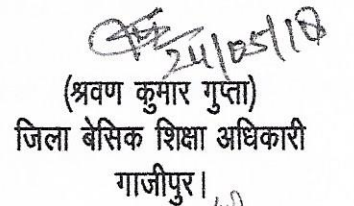 24/05/18
(श्रवण कुमार गुप्ता)
जिला बेसिक शिक्षा अधिकारी
गाजीपुर।